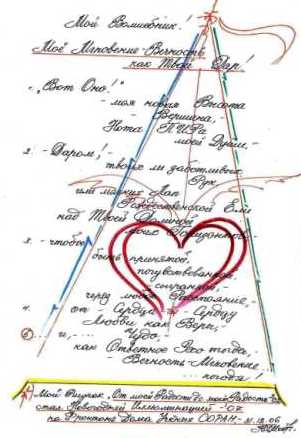 Мой Волшебник!
Моё Мгновение-Вечность
как Твой Дар!
1. „Вот Оно!"
- моя новая Высота
- Вершина,
Нота ПИРа
моей Души,-
2. - Даром!
твоих ли заботливых
Рук
или мягких Лап
Рождественской Ели
над Твоей
моих
3. - чтобы
быть принятой,
почувствованной,
через любое Расстояние,-
4. от - Сердца Сердцу
Любви как Вера,-
5. и, Чудо -
как Ответное Эхо тогда,-
- Вечность-Мгновение
Мой Рисунок „От моей Радости до моей Радости"
стал Новогодней Иллюминацией -07
на Фронтоне Дома Учёных СОРАН.- 31.12.06